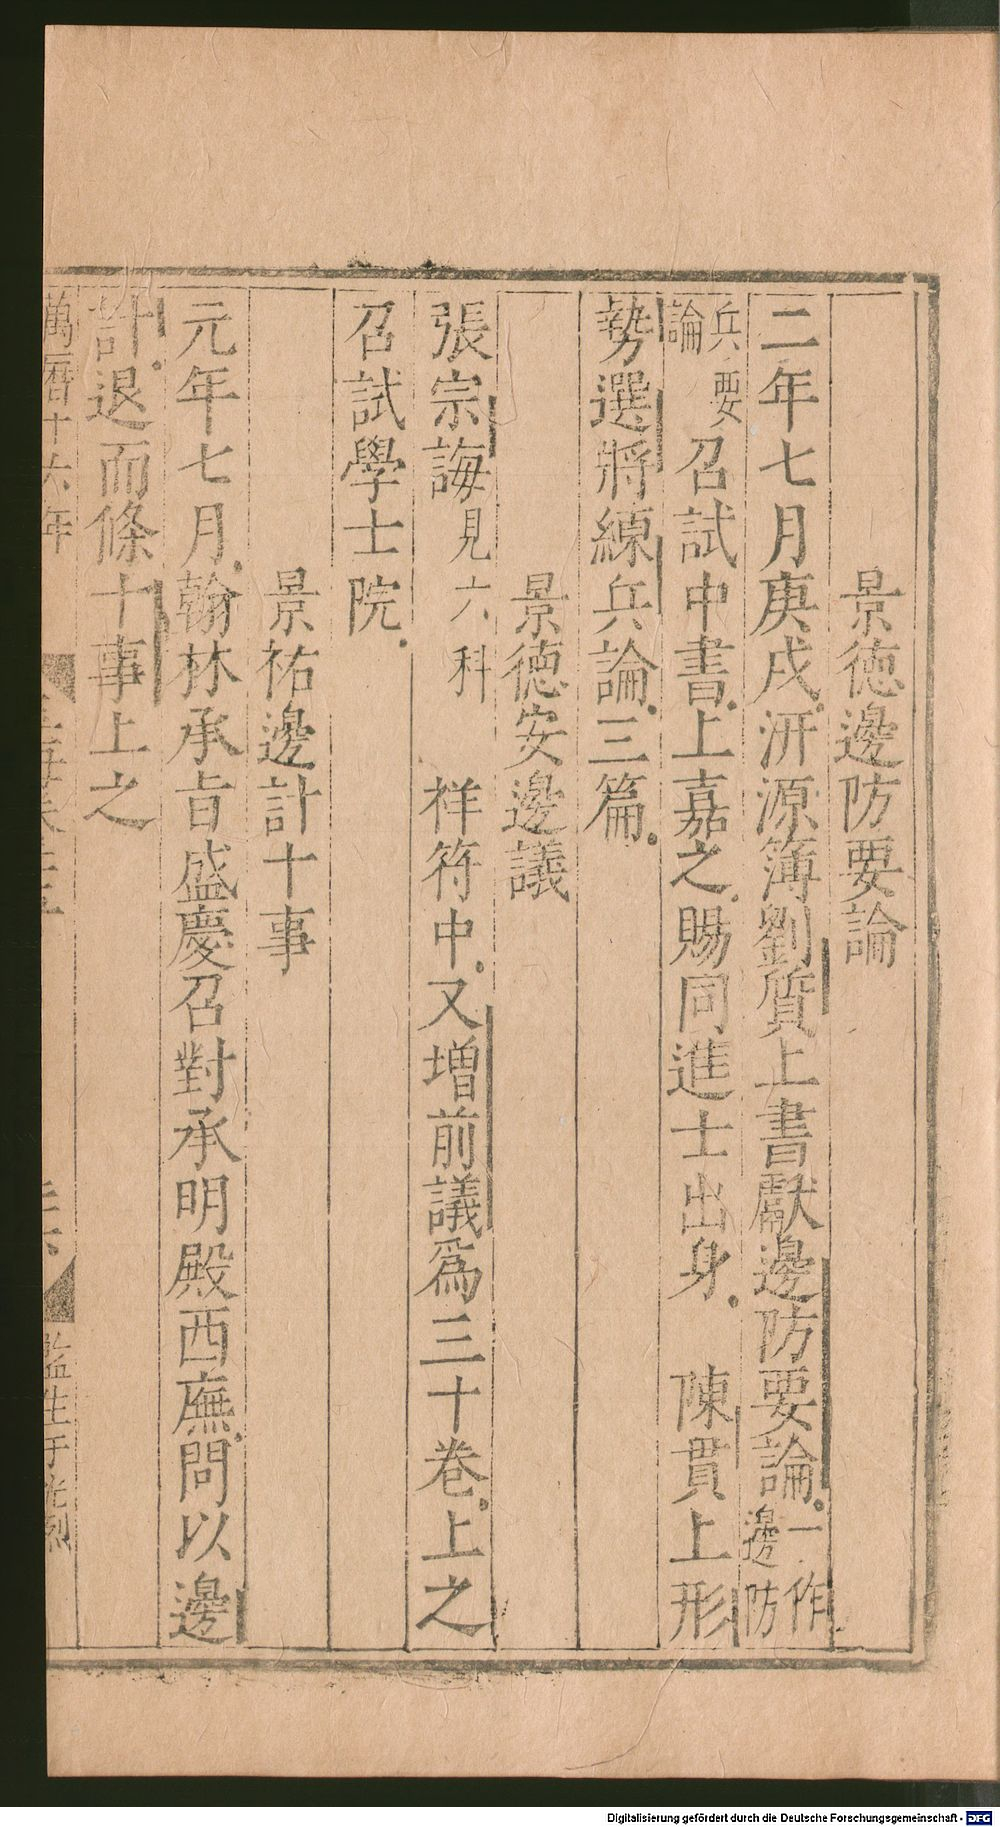 景德邊防要論
二年七月庚戌汧源簿劉質上書獻邊防要論一作邊防
兵要論召試中書上嘉之賜同進士出身　陳貫上形
勢選將練兵論三篇
景德安邊議
張宗誨見六科　祥符中又增前議爲三十卷上之
召試學士院
景祐邊計十事
元年七月翰林承旨盛慶召對承明殿西廡問以邊
計退而條十事上之
萬曆十六年
監生于
Digitalisierung gefördert durch die Deutsche Forschungsgemeinschaft - DFG